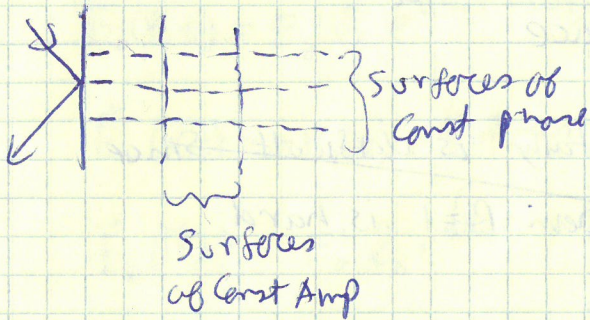 surfaces of
const phase
surfaces
of Const Amp